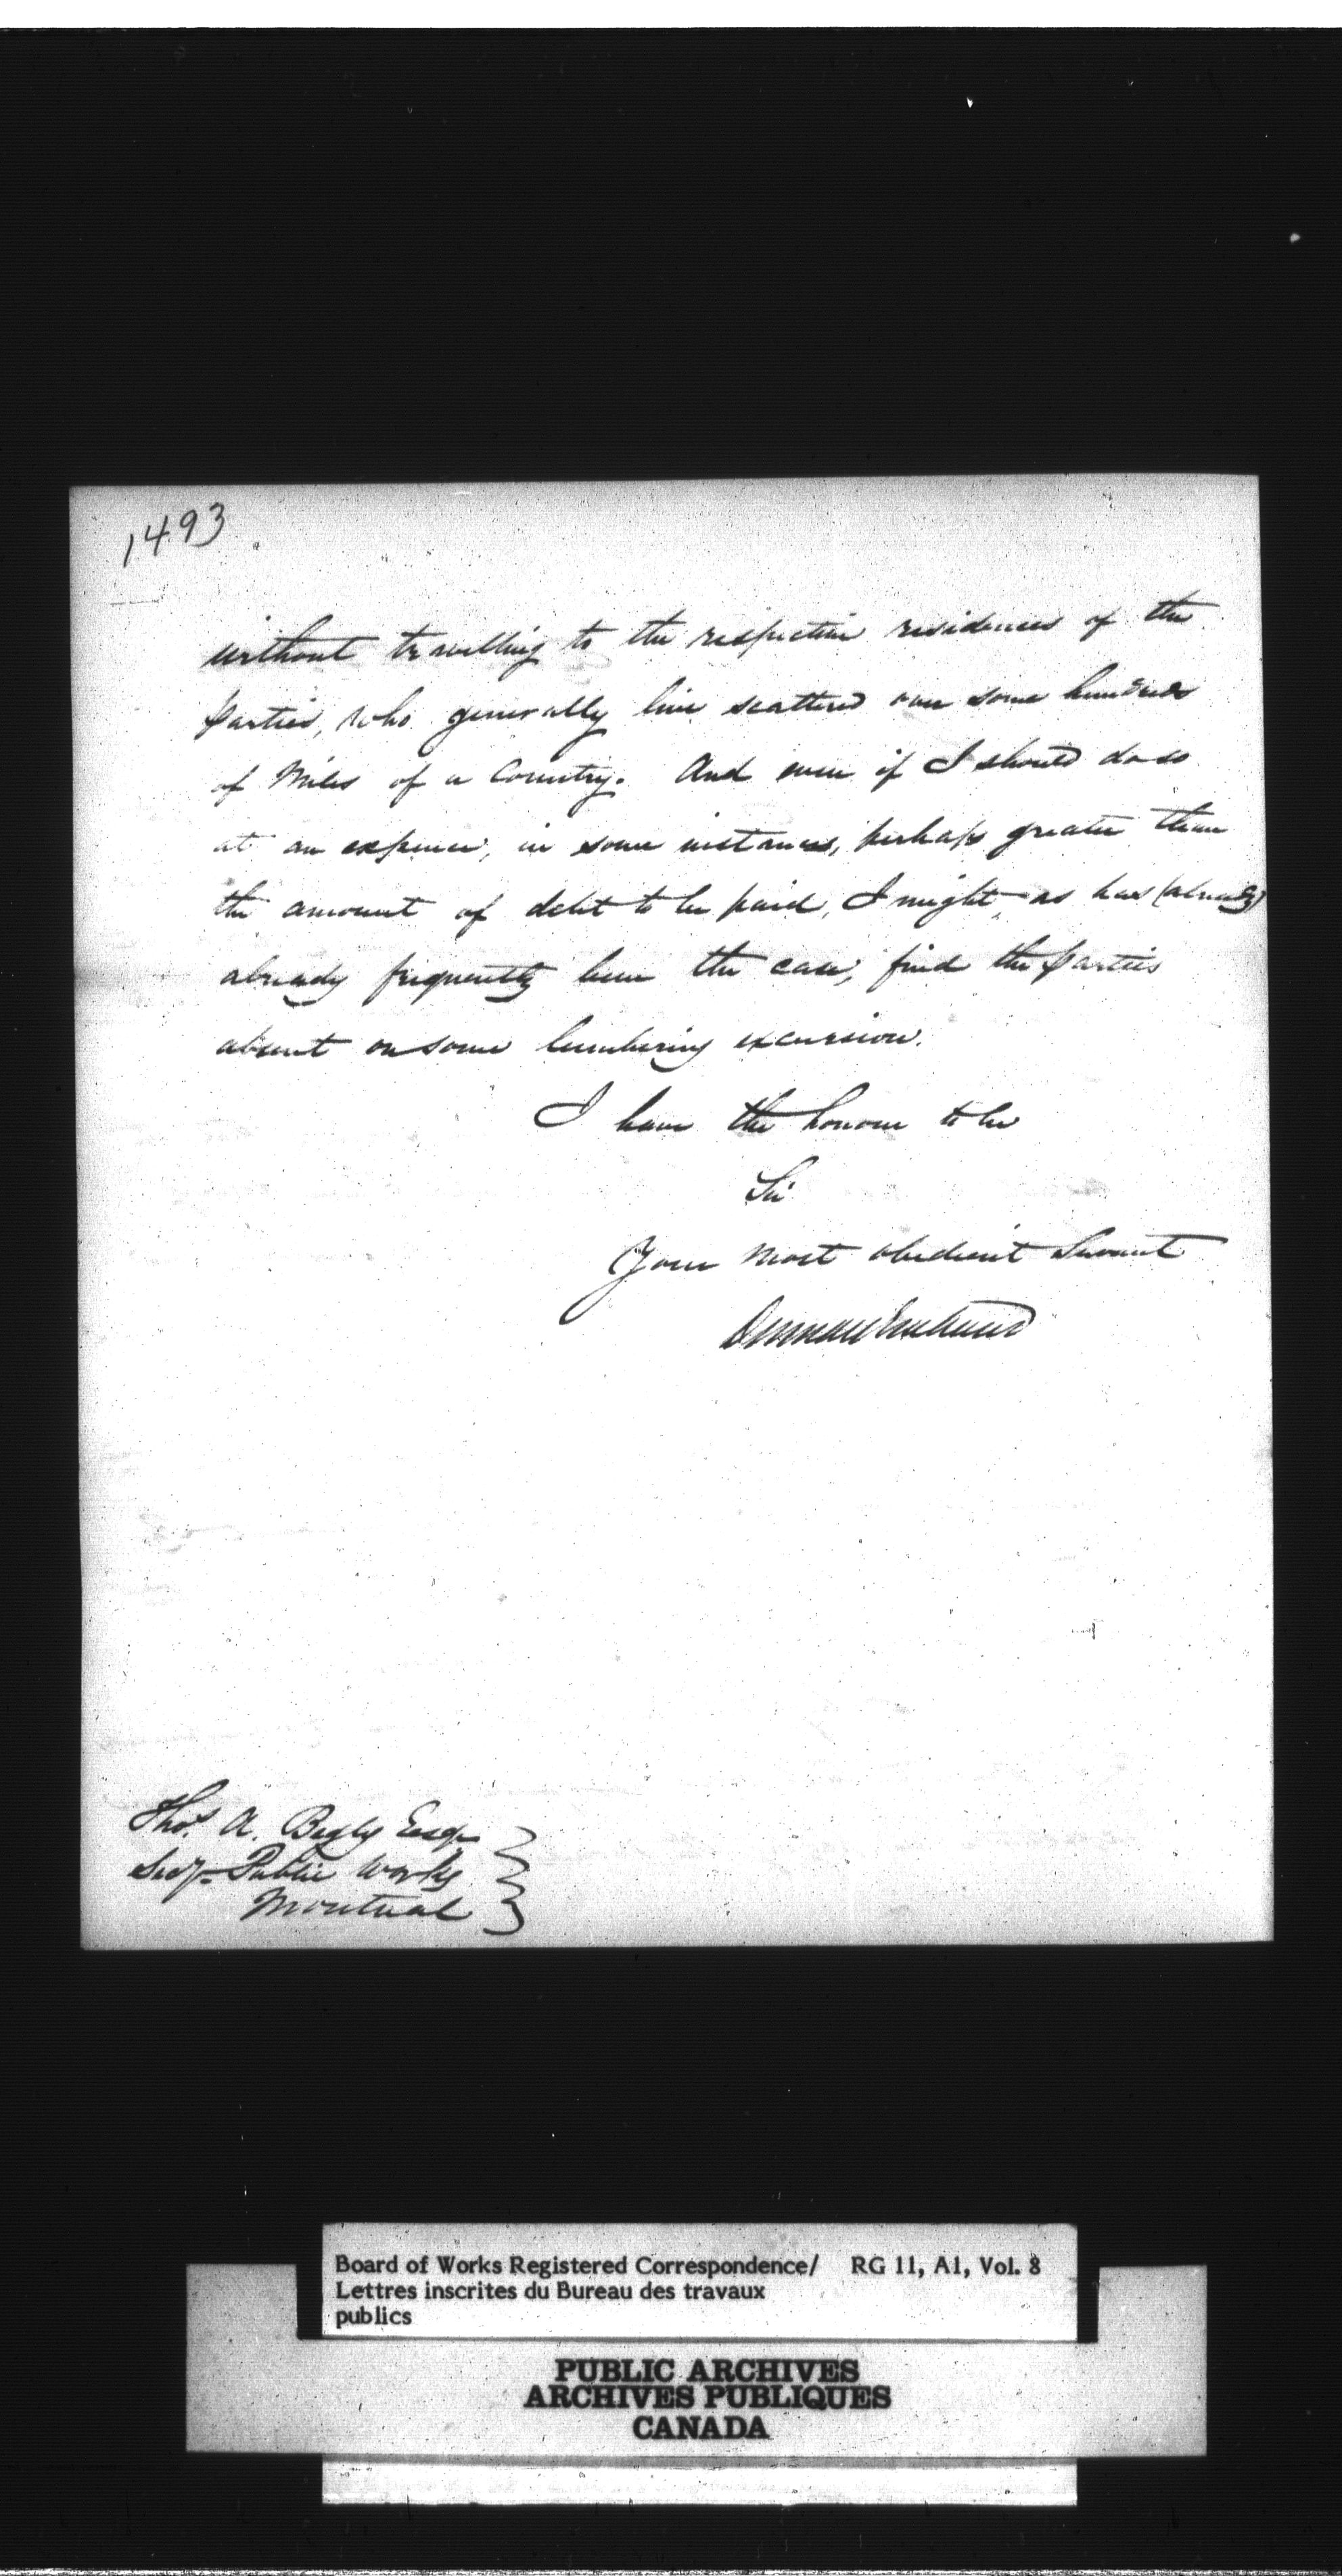 1493
without travelling to the respective residences of the
parties, who generally live scattered over some hundred
of Miles of a Country. And even if I should do so
at an expence, in some instances, perhaps greater than
the amount of debt to be paid, I might, as has (already)
already frequently been the case, find the parties
absent on some lumbering excursion.
I have the honour to be
Sir
Your most obedient Servant
Thos. A. Begly Esqr
Secy. Public Works
Montreal
Board of Works Registered Correspondence/ RG 11, A1, Vol. 8
Lettres inscrites du Bureau des travaux
publics
PUBLIC ARCHIVES
ARCHIVES PUBLIQUES
CANADA